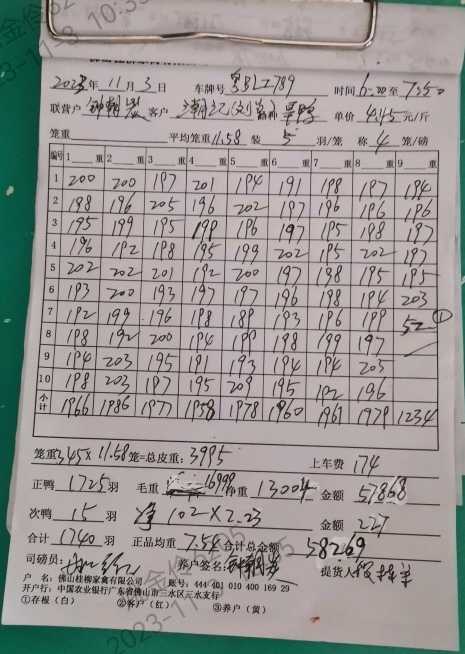 2023年 11月 3日 车牌号 粤BLZ789 时间 6:20至 7:50
联营户 客户 潮记 品种 单价 4.45元/斤
笼重 平均笼重 11.58 装 5 羽/笼 称 4 笼/磅
编号 1 重 2 重 3 重 4 重 5 重 6 重 7 重 8 重 9 重
1 200 200 197 201 194 191 198 197 194
2 198 196 205 196 202 197 196 196 196
3 195 199 195 199 196 197 195 198 197
4 196 192 198 195 199 202 195 202 197
5 202 202 201 192 200 197 198 195 195
6 193 200 193 197 197 196 198 194 203
7 192 199 196 198 189 193 196 199 52 ①
8 198 192 200 194 199 198 199 197
9 194 203 195 191 193 194 194 203
10 198 203 197 195 209 195 192 196
小计 1966 1986 1977 1958 1978 1960 1961 1979 1234
笼重 345 × 11.58 笼=总皮重: 3995 上车费 174
正鸭 1725 羽 毛重 16999 净重 13004 金额 57868
次鸭 15 羽 净 102×2.23 金额 227
合计 1740 羽 正品均重 7.54 合计总金额 58269
司磅员: 养户签名: 提货人
户 名: 佛山桂柳家禽有限公司 账号: 444 401 010 400 169 29
开户行: 中国农业银行广东省佛山市三水区三水支行
①存根（白） ②客户（红） ③养户（黄）